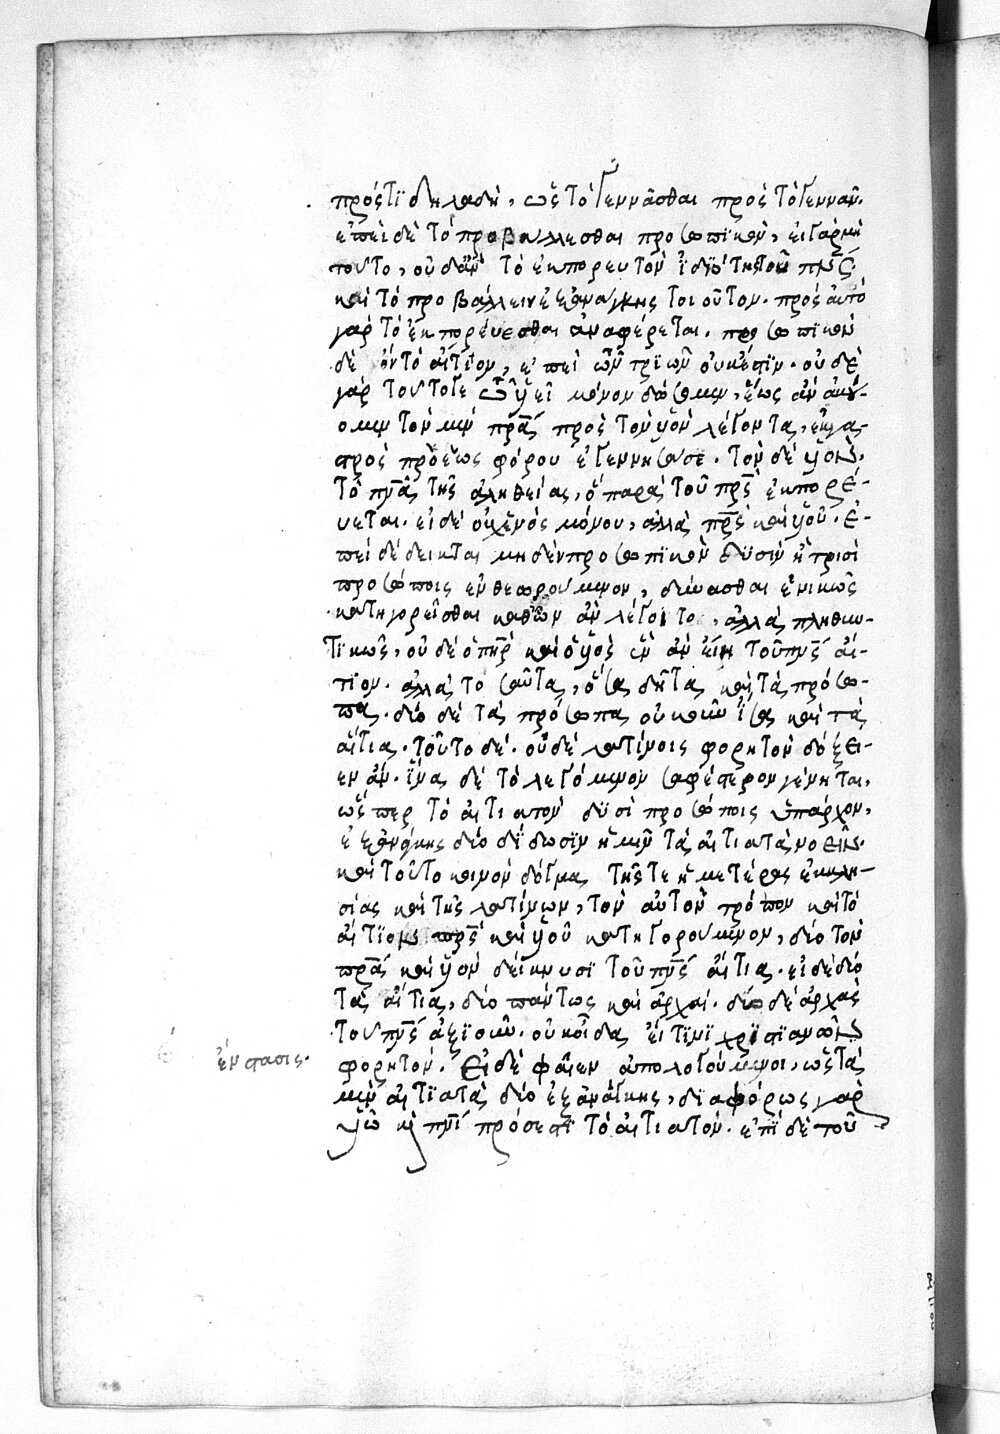 πρός τϊ δηλαδή, ὡς τὸ γεννᾶσθαι πρὸς τὸ γεννᾶν.
ἐπεὶ δὲ τὸ προβάλλεσθαι προσωπϊκὸν, εἰ γὰρ μὴ
τοῦτο, οὐδ' ἂν τὸ ἐκπορευτὸν ἰδϊότης τοῦ πνς.
καὶ τὸ προβάλλειν ἐξανάγκης τοιοῦτον. πρὸς αὐτὸ
γὰρ τὸ ἐκπορεύεσθαι ἀναφέρεται. προσωπϊκὸν
δὲ ὂν τὸ αἴτϊον, ἐπεὶ τῶν τρϊῶν οὐκ ἔστϊν. οὐδὲ
γὰρ τοῦτό γε μόνον δώσομεν, ἕως ἂν ἀκού-
ομεν τὸν μὲν πρα πρὸς τὸν υν λέγοντα, ἐκ γα-
στρὸς πρὸ ἑωσφόρου ἐγέννησά σε. τὸν δὲ υν
τὸ πνα τῆς ἀληθείας, ὃ παρὰ τοῦ πρς ἐκπορεύ-
εται. εἰ δὲ οὐχ ἑνὸς μόνου, ἀλλὰ πρς καὶ υοῦ. ἐ-
πεὶ δέδεικται μηδὲν προσωπϊκὸν δυσὶν ἢ τρισὶ
προσώποις ἐνθεωρούμενον, δύνασθαι ἑνικῶς
κατηγορεῖσθαι καθ' ὧν ἂν λέγοιτο, ἀλλὰ πληθυν-
τϊκῶς, οὐδὲ ὁ πηρ καὶ ὁ υὸς ἓν ἂν εἴη τοῦ πνς αἴ-
τϊον. ἀλλὰ τοσαῦτα, ὅσα δῆτα καὶ τὰ πρόσω-
πα. δύο δὲ τὰ πρόσωπα οὐκοῦν ἴσα καὶ τὰ
αἴτια. τοῦτο δὲ. οὐδὲ λατίνοις φορητὸν δόξει-
εν ἄν. ἵνα δὲ τὸ λεγόμενον σαφέστερον γένηται,
ὥσπερ τὸ αἰτιατὸν δϋσὶ προσώποις ὑπάρχον,
ἐξανάγκης δύο δίδωσϊν ἡμῖν τὰ αἰτιατὰ νοεῖν.
καὶ τοῦτο κοινὸν δόγμα τῆς τε ἡμετέρας ἐκκλη-
σίας καὶ τῆς λατίνων, τὸν αὐτὸν τρόπον καὶ τὸ
αἴτϊον πρς καὶ υοῦ κατηγορούμενον, δύο τὸν
πρα καὶ υν δείκνυσϊ τοῦ πνς αἴτια. εἰ δὲ δύο
τὰ αἴτια, δύο πάντως καὶ ἀρχαί. δύο δὲ ἀρχὰς
τοῦ πνς ἀξϊοῦν. οὐκ οἶδα εἴ τϊνϊ χρϊστϊανῶν
φορητόν. Εἰ δὲ φαῖεν ἀπολογούμενοι, ὡς τὰ
μὲν αἰτϊατὰ δύο ἐξανάγκης, δϊαφόρως γὰρ
υῶ κ πνϊ πρόσεστϊ τὸ αἰτιατόν. ἐπὶ δὲ τοῦ
ἔνστασις.